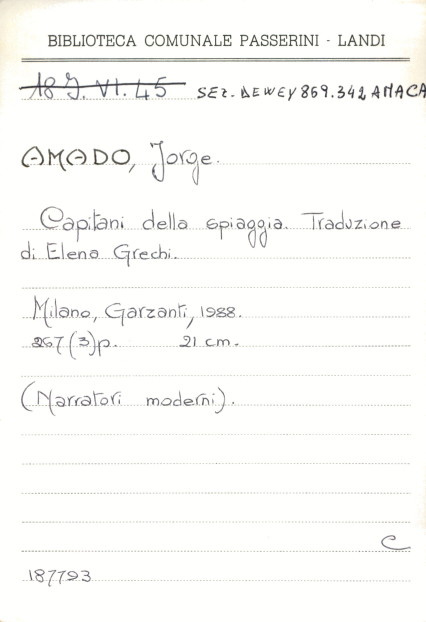 BIBLIOTECA COMUNALE PASSERINI - LANDI
18 J. VI. 45 SEZ. DEWEY 869.342 AMACA
AMADO, Jorge.
Capitani della spiaggia. Traduzione
di Elena Grechi.
Milano, Garzanti, 1988.
267 (3) p. 21 cm.
(Narratori moderni).
C
187793